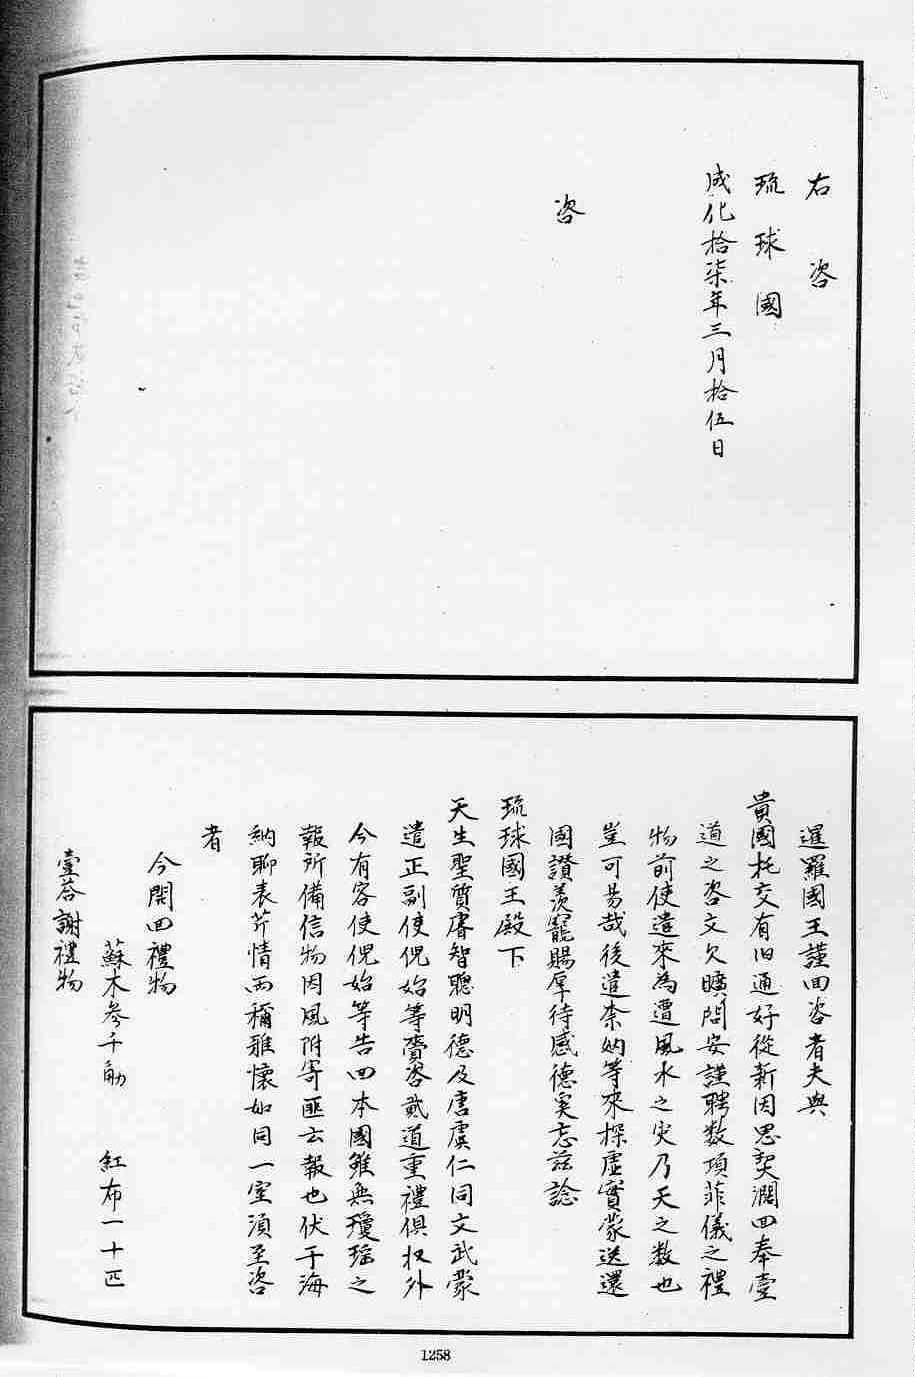 右咨
琉球國
成化拾柒年三月拾伍日
咨
暹羅國王謹回咨者夫與
貴國托交有旧通好從新因思契濶回奉壹
道之咨文欠曠問安謹聘数項菲儀之禮
物前使遣來為遭風水之灾乃天之数也
豈可昜哉後遣柰納等來探虛實蒙送還
國讃羨寵賜厚待感德奚忘茲諗
琉球國王殿下
天生聖質睿智聰明德及唐虞仁同文武蒙
遣正副使倪始等賫咨貳道重禮俱权外
今有客使倪始等告回本國雖無瓊瑶之
報所備信物因風附寄匪云報也伏于海
納聊表芹情而稱雅懷如同一室湏至咨
者
今開回禮物
蘇木叁千觔 紅布一十匹
壹荅謝禮物
1258